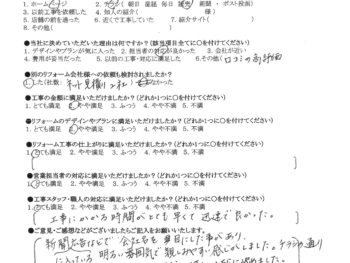 1. ホームページ 2. チラシ（朝日 産経 毎日 読売 新聞・ポスト投函）
3. 以前工事を依頼した 4. 知人の紹介（ 様）
5. 店舗の前を通った 6. 近くで工事していた 7. 紹介サイト（ ）
8. その他（ ）
●当社に決めていただいた理由は何ですか？（該当項目全てに○を付けてください）
1. デザインやプランが気に入った 2. 担当者の対応が良かった 3. 会社が近い
4. 費用が妥当だった 5. 以前の工事・対応に満足 6. その他（口コミの高評価
●別のリフォーム会社様への依頼も検討されましたか？
1. した（社数： ネット見積り 社） 2. しなかった
●工事の金額に満足いただけましたか？（どれか1つに○を付けてください）
1. とても満足 2. やや満足 3. ふつう 4. やや不満 5. 不満
●リフォームのデザインやプランに満足いただけましたか？（どれか1つに○を付けてください）
1. とても満足 2. やや満足 3. ふつう 4. やや不満 5. 不満
●リフォーム工事の仕上がりに満足いただけましたか？（どれか1つに○を付けてください）
1. とても満足 2. やや満足 3. ふつう 4. やや不満 5. 不満
●営業担当者の対応に満足いただけましたか？（どれか1つに○を付けてください）
1. とても満足 2. やや満足 3. ふつう 4. やや不満 5. 不満
●工事スタッフ・職人の対応に満足いただけましたか？（どれか1つに○を付けてください）
1. とても満足 2. やや満足 3. ふつう 4. やや不満 5. 不満
工事にかかる時間がとても早くて迅速で良かった。
●ご意見・ご感想などがございましたらご記入をお願いいたします。
新聞広告などで会社名を目にした事があり、
に入っている 明るい雰囲気で親しみやすい感じがしました。チラシの通り